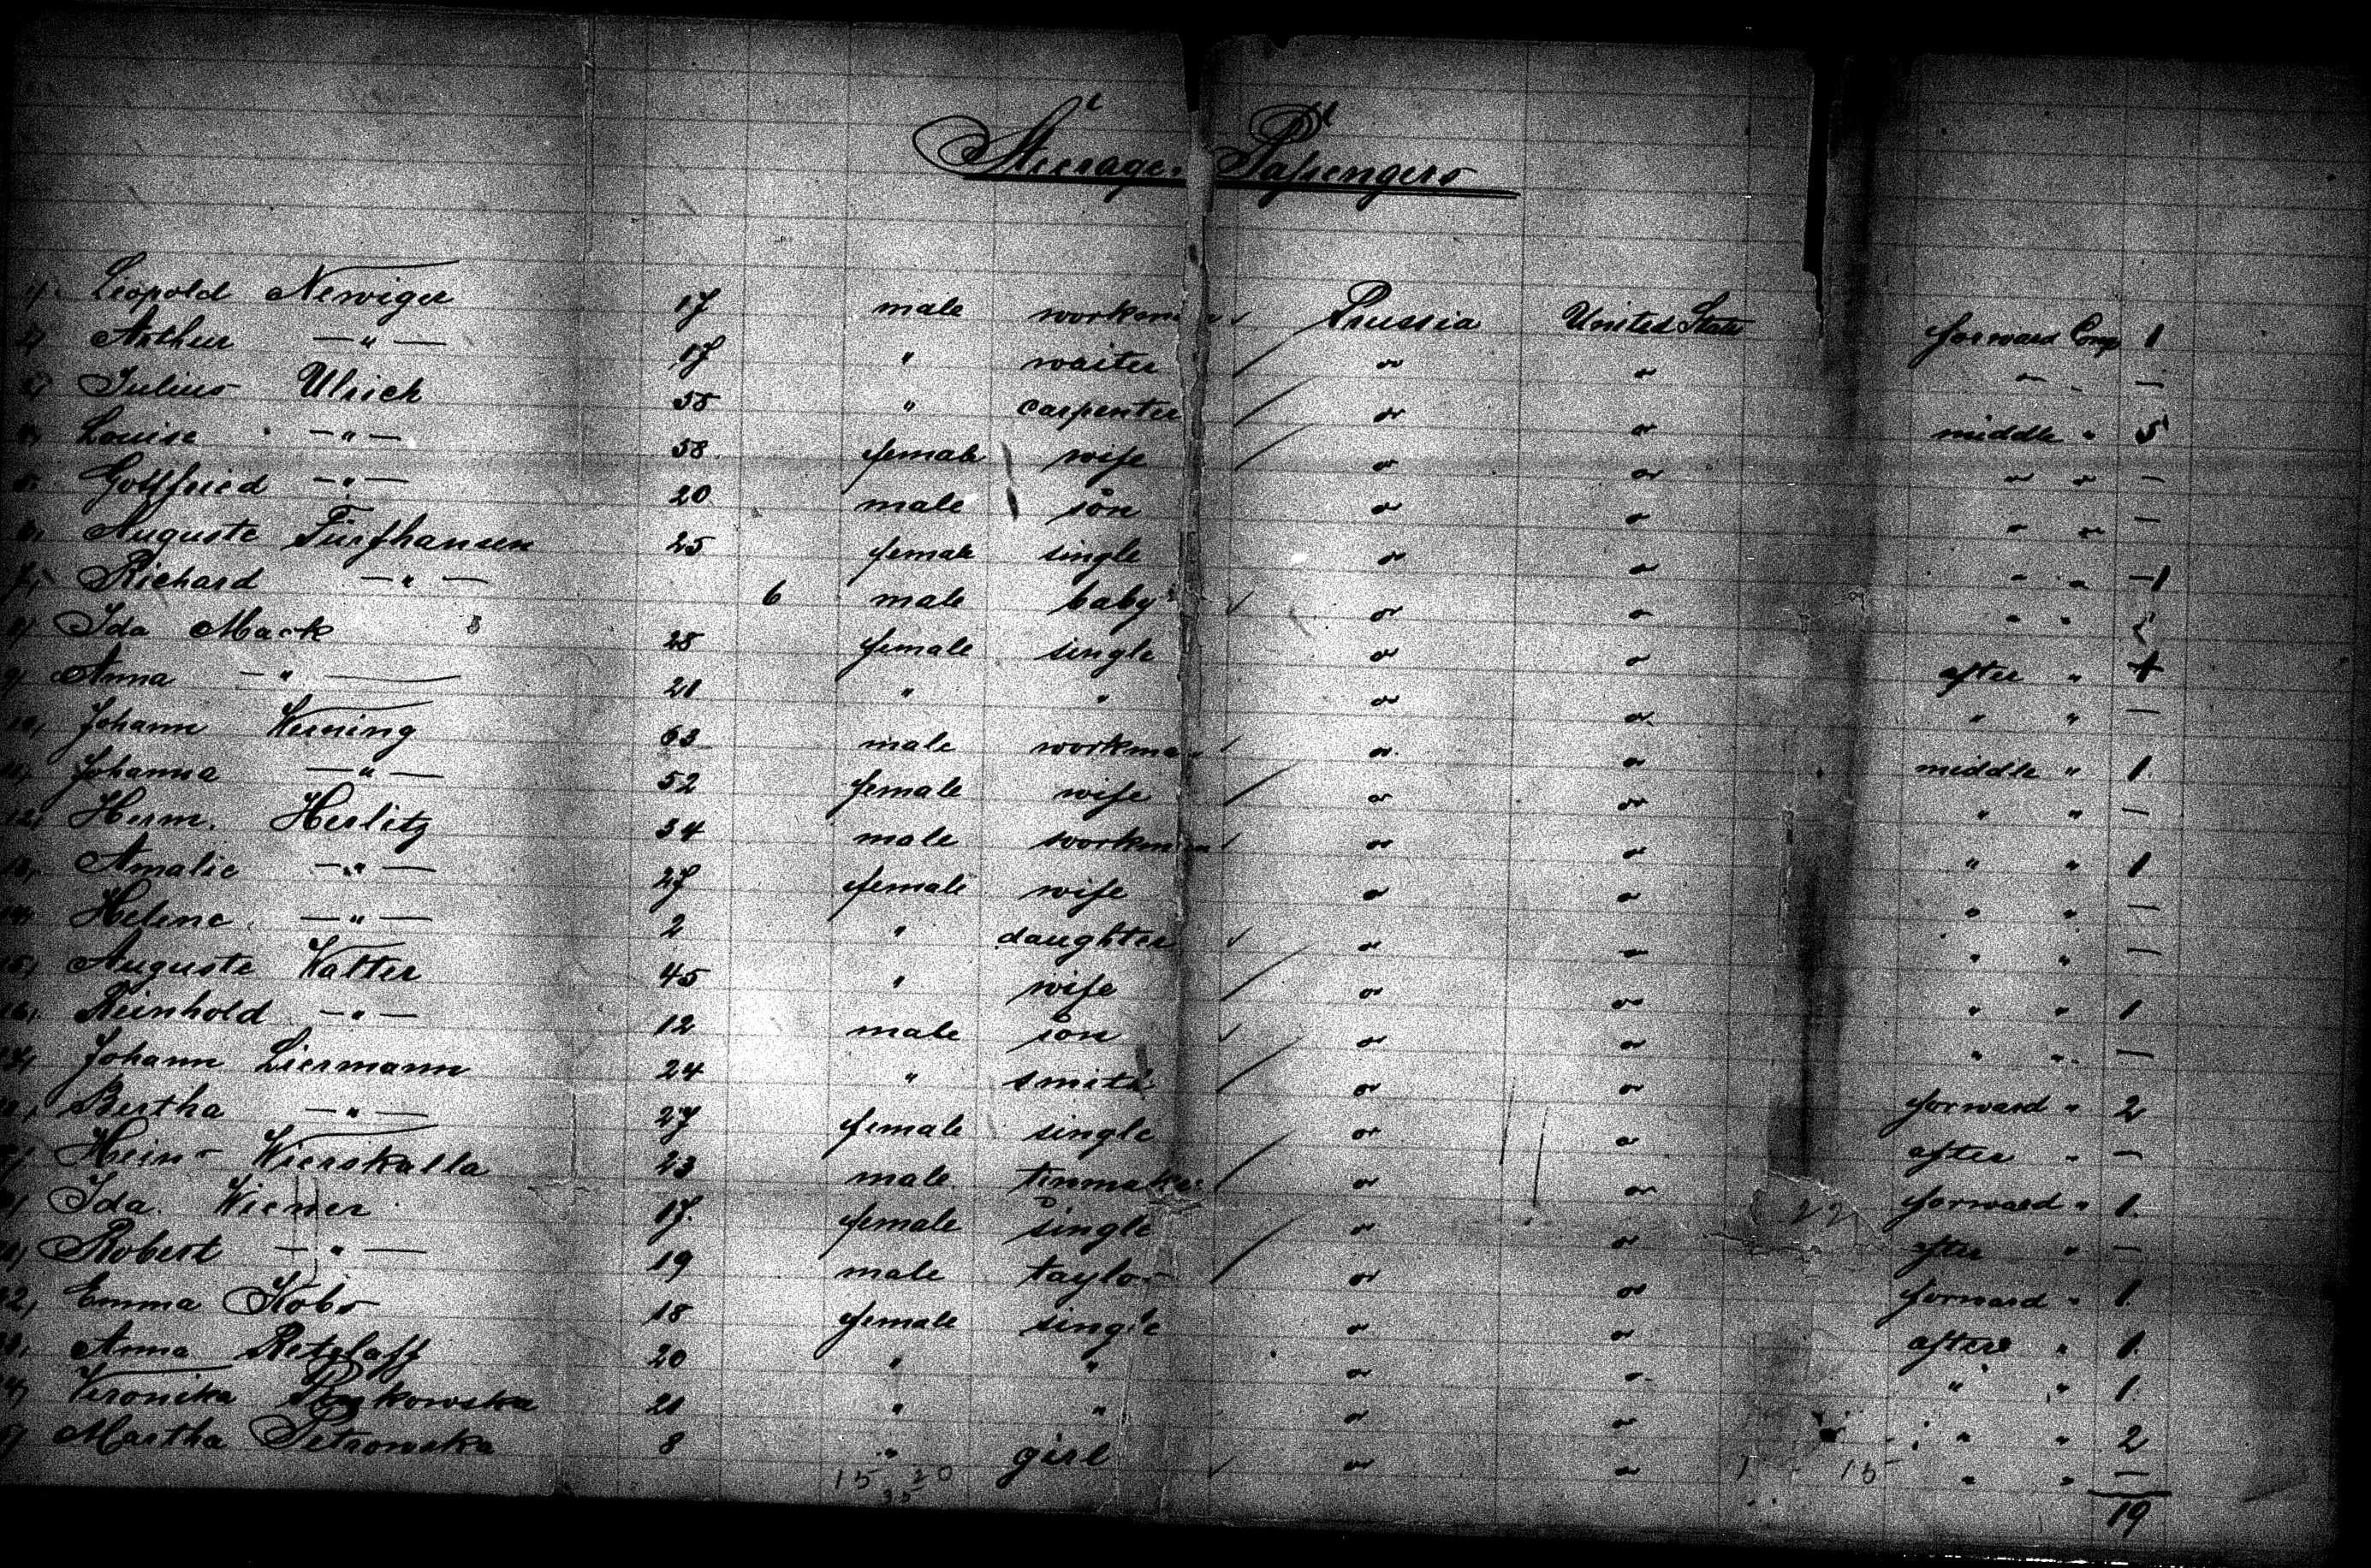 Steerage Passengers
1) Leopold Newiger 17 male workman ✓ Prussia United State forward Comp 1
2) Arthur —"— 17 " waiter / " " " " —
3) Julius Ulrich 58 " carpenter / " " middle " 5
4) Louise —"— 58 female wife / " " " " —
5) Gottfried —"— 20 male son " " " " —
6) Auguste 25 female single " " " " —1
7) Richard —"— 6 male baby ✓ " " " "
8) Ida Mack 28 female single " " after " 1
9) Anna —"— 21 " " " " " " —
10) Johann Werning 63 male workman ✓ " " middle " 1
11) Johanna —"— 52 female wife / " " " " —
12) Herm. Herlitz 34 male workman ✓ " " " " 1
13) Amalie —"— 27 female wife " " " " —
14) Helene —"— 2 " daughter ✓ " " " " —
15) Auguste Walter 45 " wife / " " " " 1
16) Reinhold —"— 12 male son ✓ " " " " —
17) Johann Liermann 24 " smith / " " forward " 2
18) Bertha —"— 27 female single " " after " —
19) Heinr Wierskalla 23 male tinmaker / " " forward " 1
20) Ida Wiemer 17 female single " " after " —
21) Robert —"— 19 male taylor / " " forward " 1
22) Emma Kobs 18 female single " " after " 1
23) Anna Retzlaff 20 " " " " " " 1
24) Veronika 21 " " " " " " 2
25) Martha Petrowska 8 " girl ✓ " " " " —
15 20 1 15
35
19